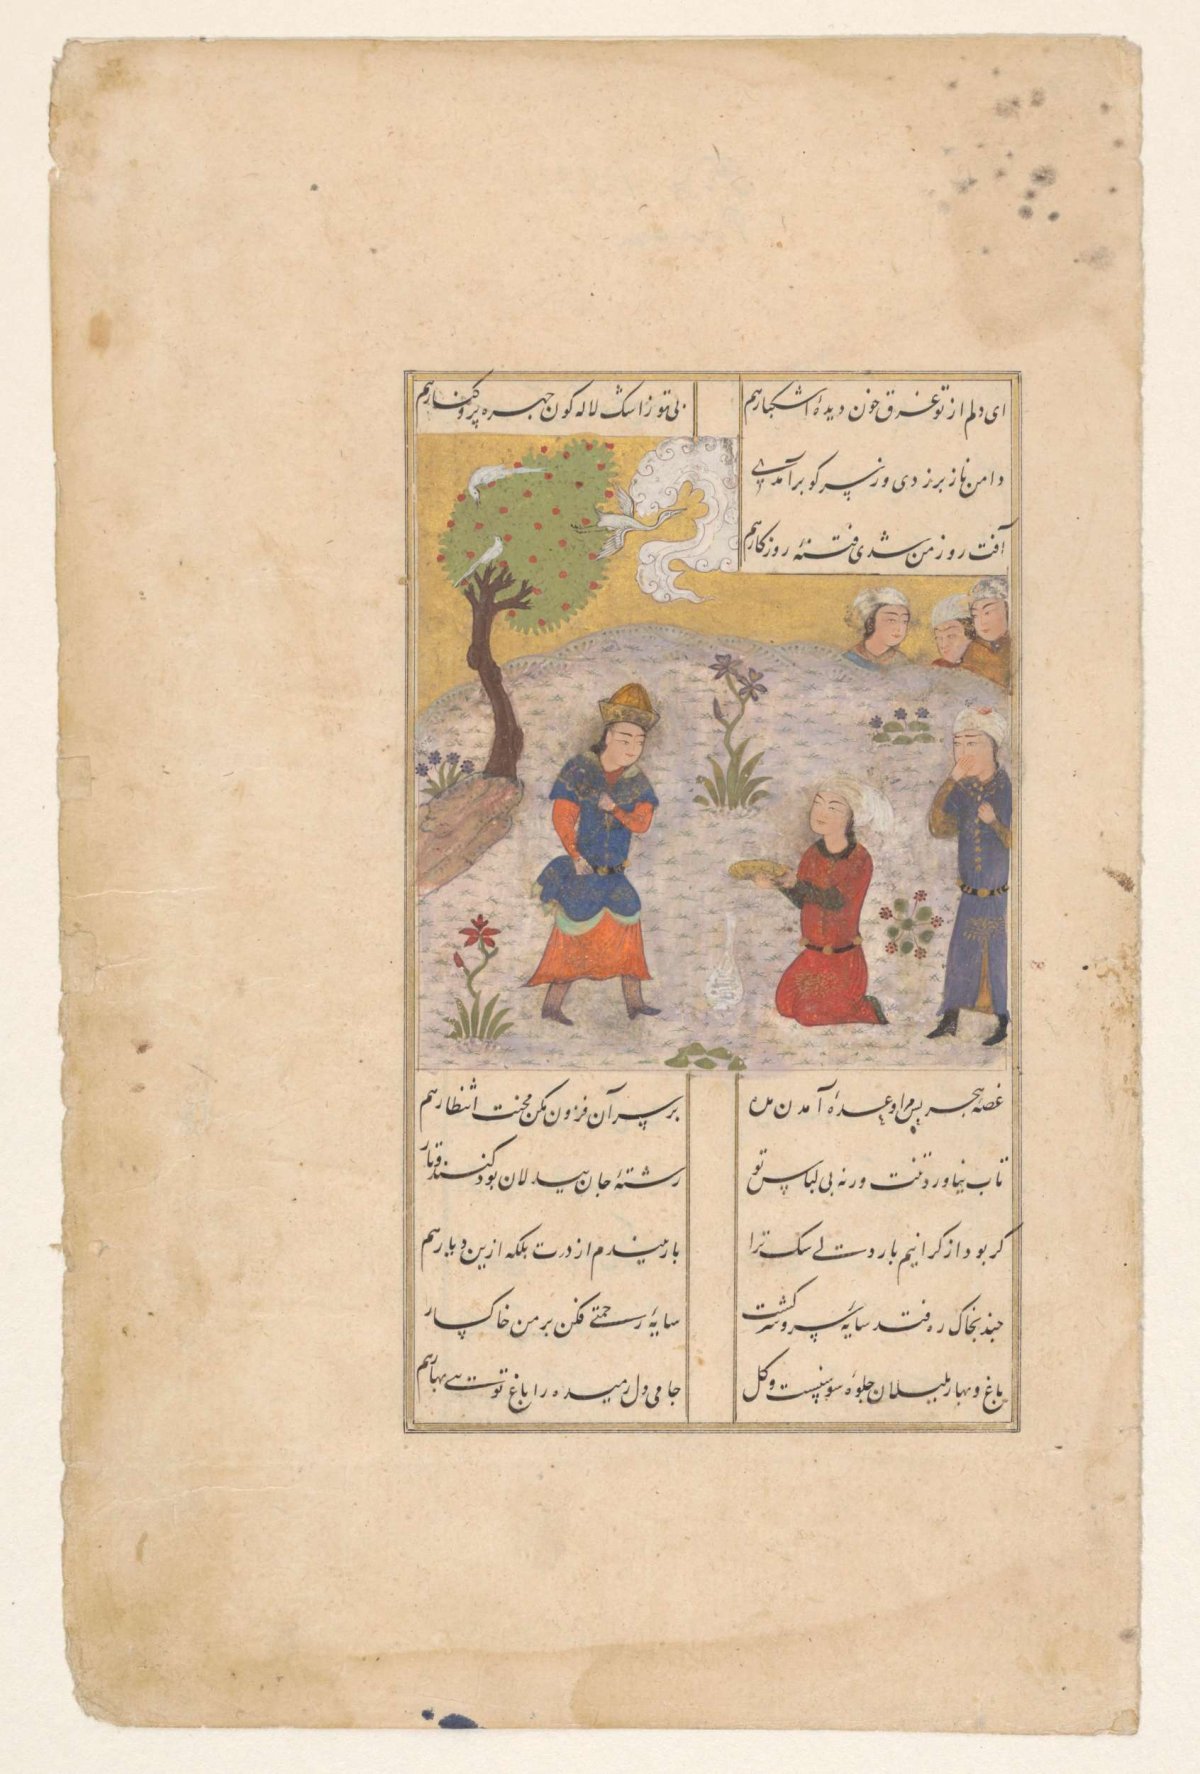 ای دلم از تو غرق خون دیدهٔ اشکبار هم بی تو ز اشک لاله کون چهره پر و کنار هم
دامن ناز بر زدی وز سر کو برآمدی
آفت روز من شدی فتنهٔ روزکار هم
غصهٔ هجر بس مرا وعدهٔ آمدن مده بر سر آن فزون مکن محنت انتظار هم
تاب نیاورد تنت ورنه پی لباس تو رشتهٔ جان بیدلان پود کنند و تار هم
کر بود از کرانیم بار دلی سک ترا بار ببندم از درت بلکه ازین دیار هم
چند بخاک ره فتد سایهٔ سرو سرکشت سایهٔ رحمتی فکن بر من خاکسار
باغ و بهار بلبلان جلوهٔ سوسنست و کل جامی دل رمیده را باغ تویی بهار هم